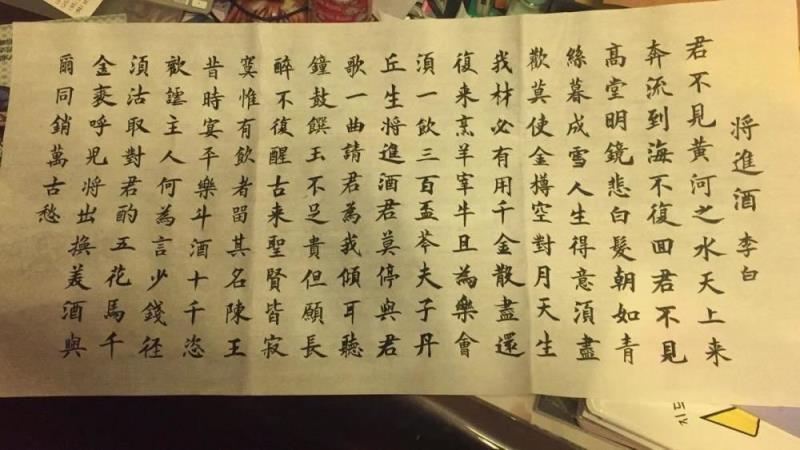 將進酒 李白
君不見黃河之水天上来
奔流到海不復回君不見
高堂明鏡悲白髮朝如青
絲暮成雪人生得意須盡
歡莫使金樽空對月天生
我材必有用千金散盡還
復来烹羊宰牛且為樂會
須一飲三百盃岑夫子丹
丘生將進酒君莫停與君
歌一曲請君為我傾耳聽
鐘鼓饌玉不足貴但願長
醉不復醒古来聖賢皆寂
寞惟有飲者留其名陳王
昔時宴平樂斗酒十千恣
歡謔主人何為言少錢径
須沽取對君酌五花馬千
金裘呼兒將出換美酒與
爾同銷萬古愁
지도